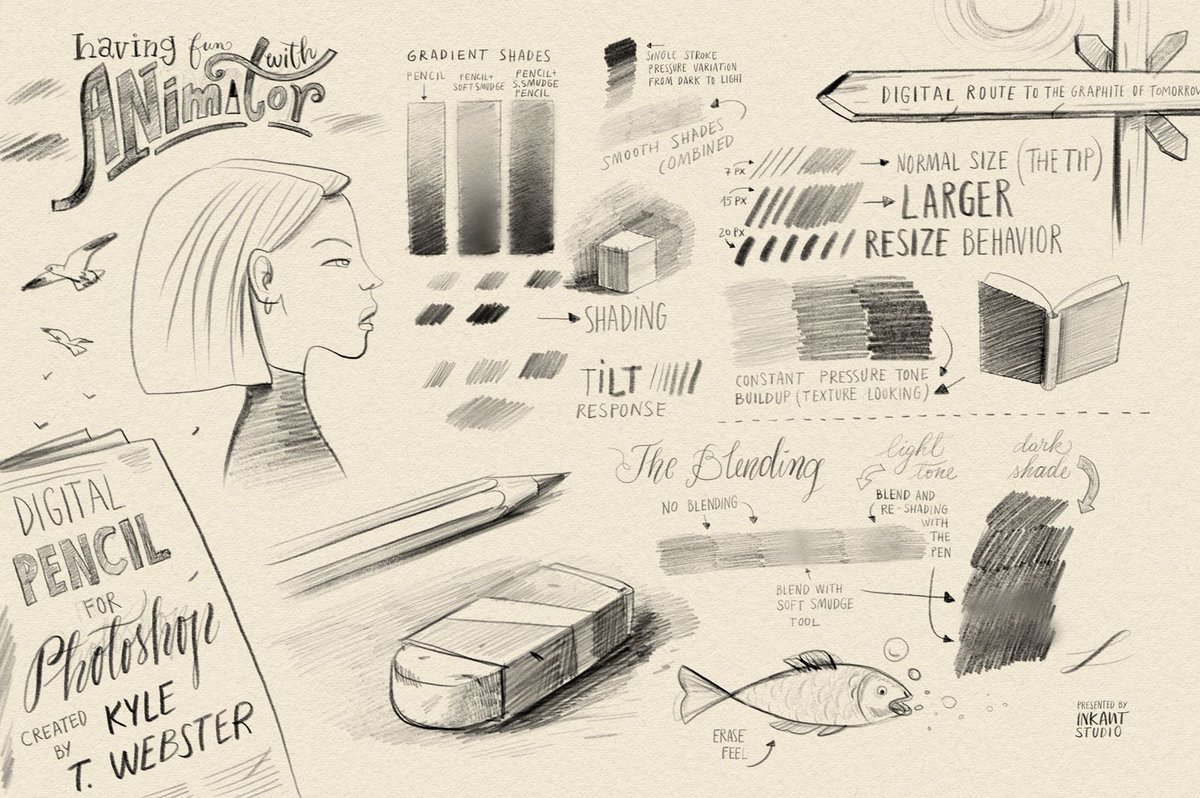 having fun with
ANimator
GRADIENT SHADES
PENCIL
PENCIL+
SOFT SMUDGE
PENCIL+
S.SMUDGE
PENCIL
SINGLE STROKE
PRESSURE VARIATION
FROM DARK TO LIGHT
SMOOTH SHADES
COMBINED
DIGITAL ROUTE TO THE GRAPHITE OF TOMORROW
7 PX
NORMAL SIZE (THE TIP)
15 PX
LARGER
20 PX
RESIZE BEHAVIOR
SHADING
TiLT
RESPONSE
CONSTANT PRESSURE TONE
BUILDUP (TEXTURE LOOKING)
The Blending
light
tone
dark
shade
NO BLENDING
BLEND AND
RE-SHADING
WITH
THE
PEN
BLEND WITH
SOFT SMUDGE
TOOL
DIGITAL
PENCIL
FOR
Photoshop
CREATED
BY
KYLE
T. WEBSTER
ERASE
FEEL
PRESENTED BY
INKAUT
STUDIO